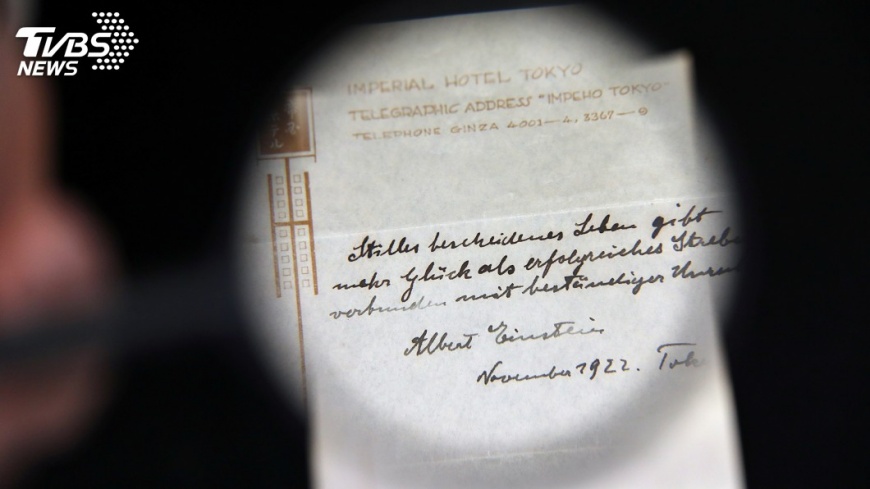 TVBS
NEWS
IMPERIAL HOTEL TOKYO
TELEGRAPHIC ADDRESS "IMPEHO TOKYO"
TELEPHONE GINZA 4001—4, 3367—9
Stilles bescheidenes Leben gibt
mehr Glück als erfolgreiches Strebe
verbunden mit beständiger Unru
Albert Einstein
November 1922. Tok